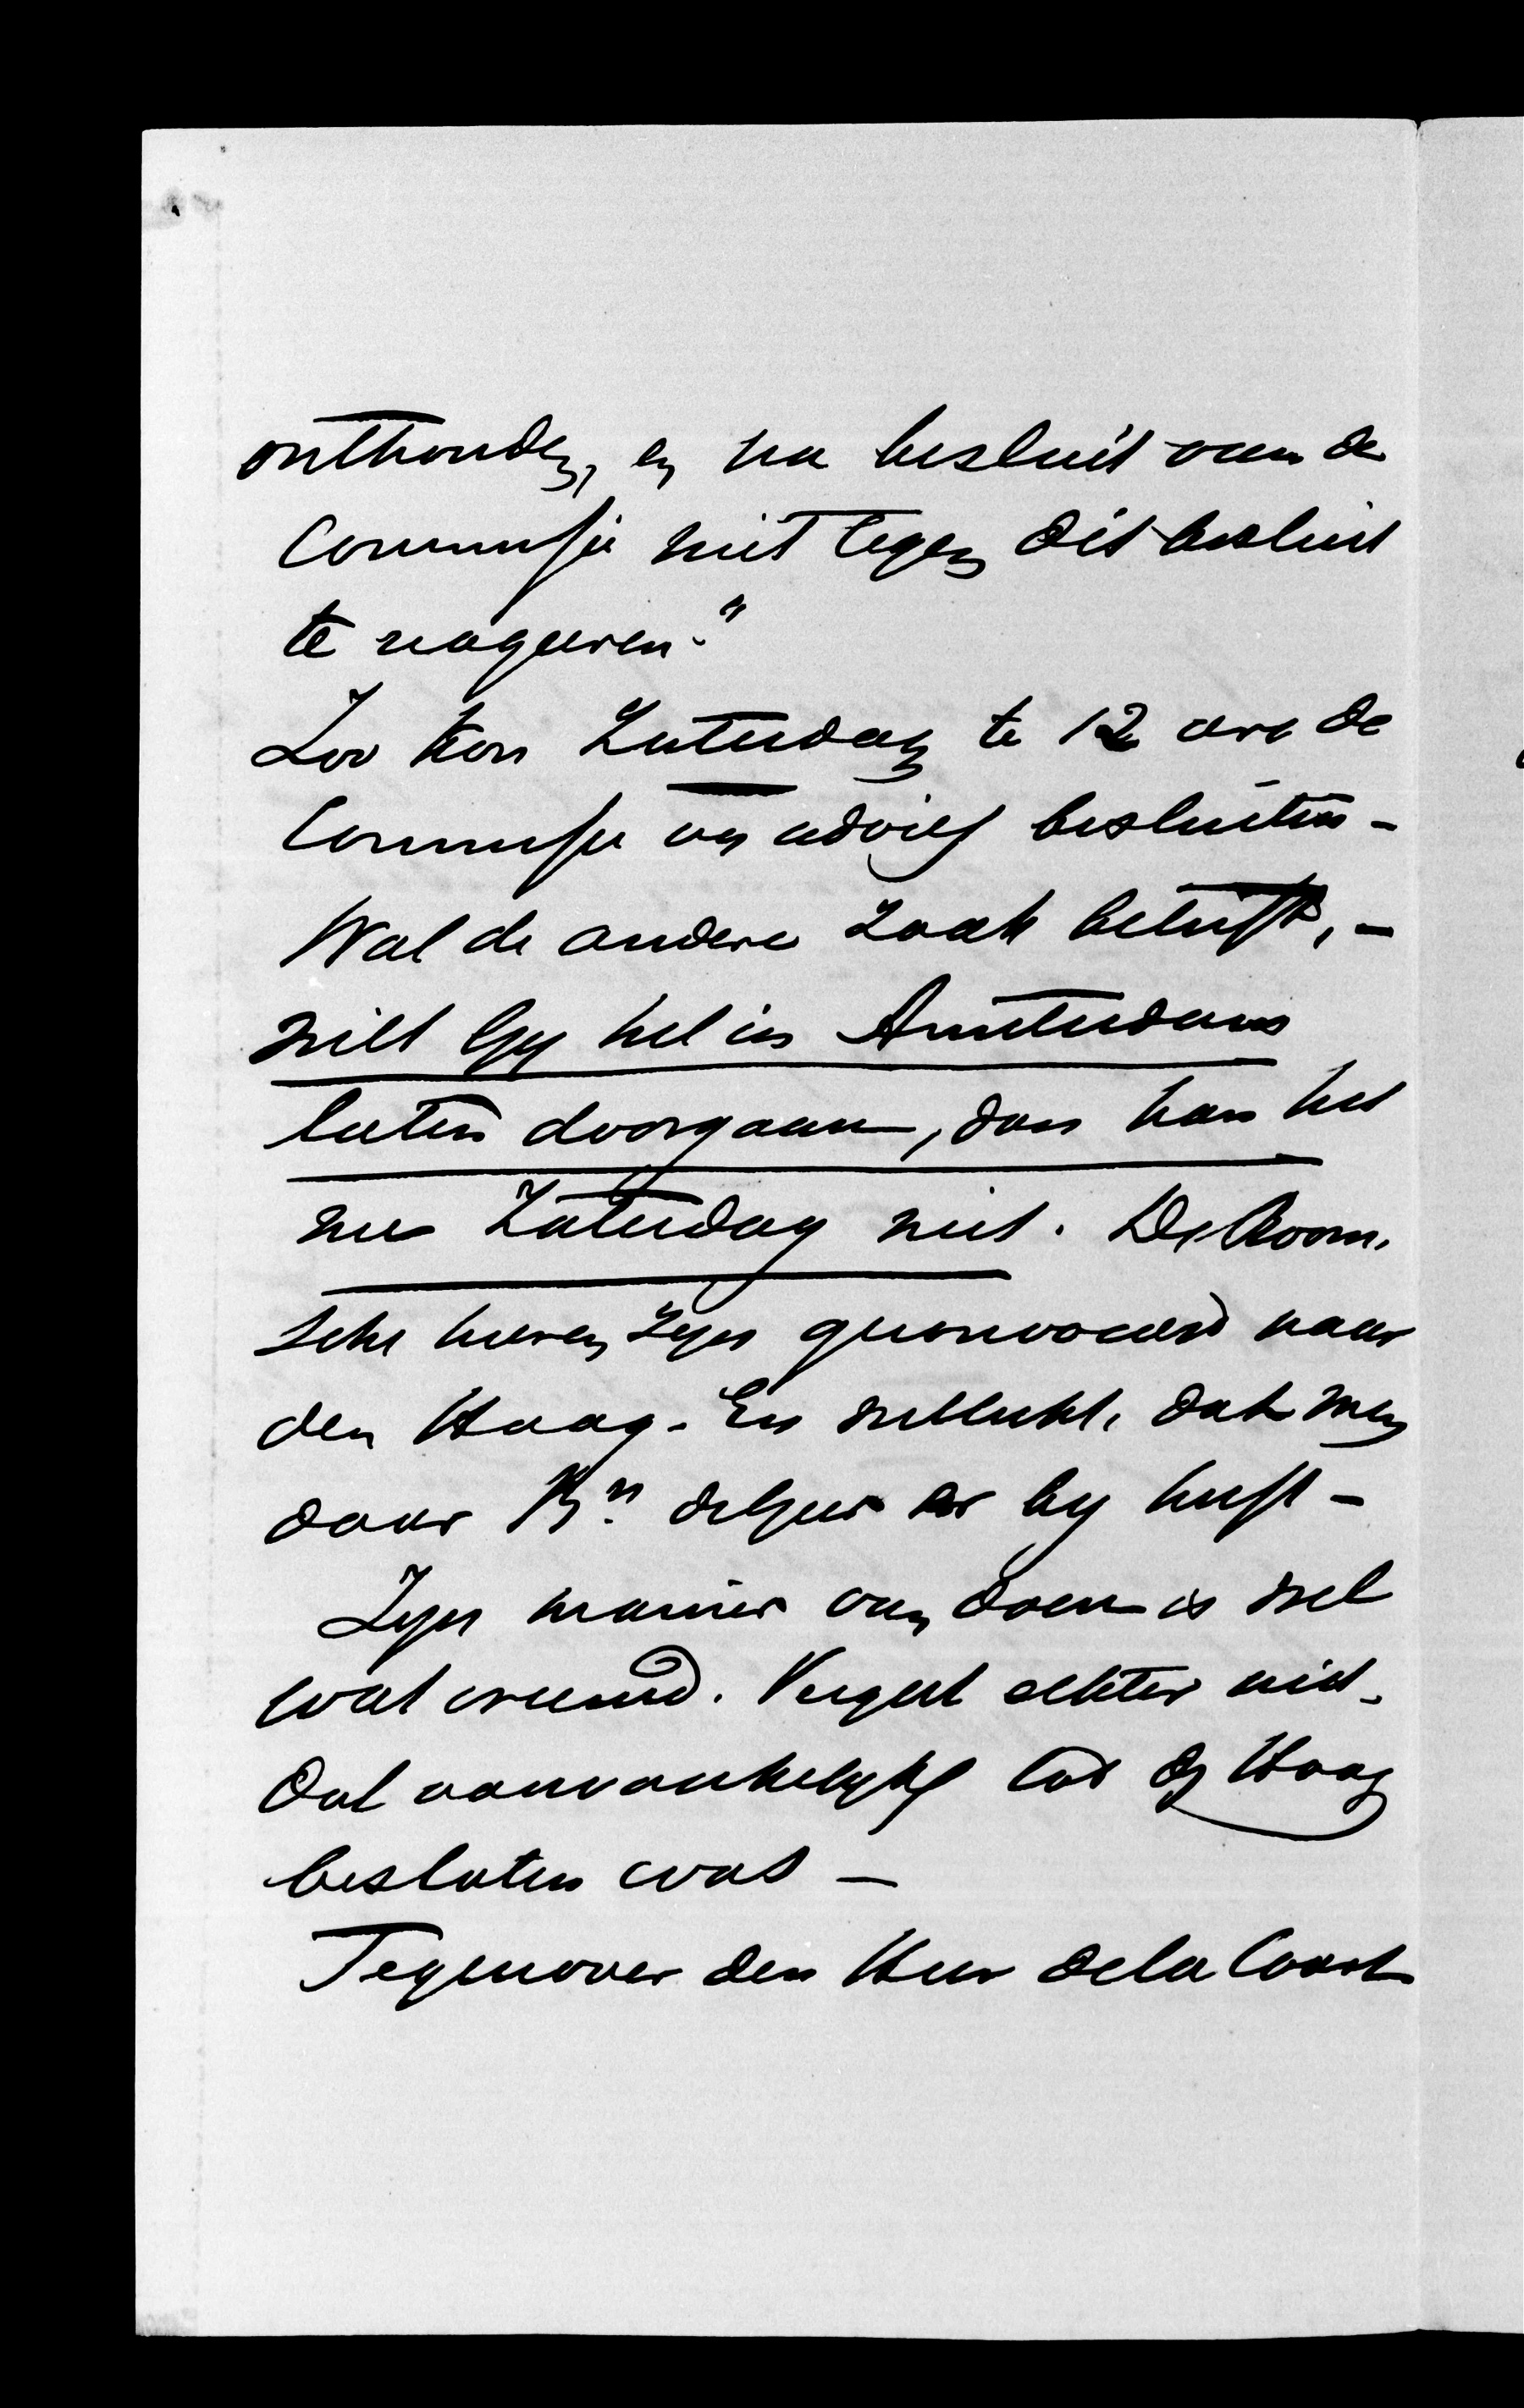 onthouden, en na besluit van de
Commissie niet tegen dit besluit
te reageren."
Zoo kon Zaturdag te 12 ure de
Commissie en advies besluiten -
Wat de andere zaak betreft, -
wilt Gy het in Amsterdam
laten doorgaan, dan kan het
nu Zaturdag niet. De Room.
sche heeren zyn geconvoceerd naar
den Haag. En wellicht, dat men
daar Bn. de Geer er by heeft -
Zyn manier van doen is wel
wat vreemd. Vergeet echter niet,
dat aanvankelyk tot den Haag
besloten was -
Tegenover den Heer de la Court